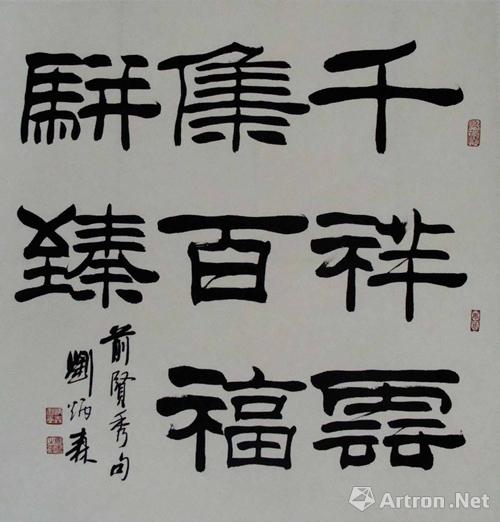 千祥雲
集百福
駢臻
前賢秀句
劉炳森
Artron.Net